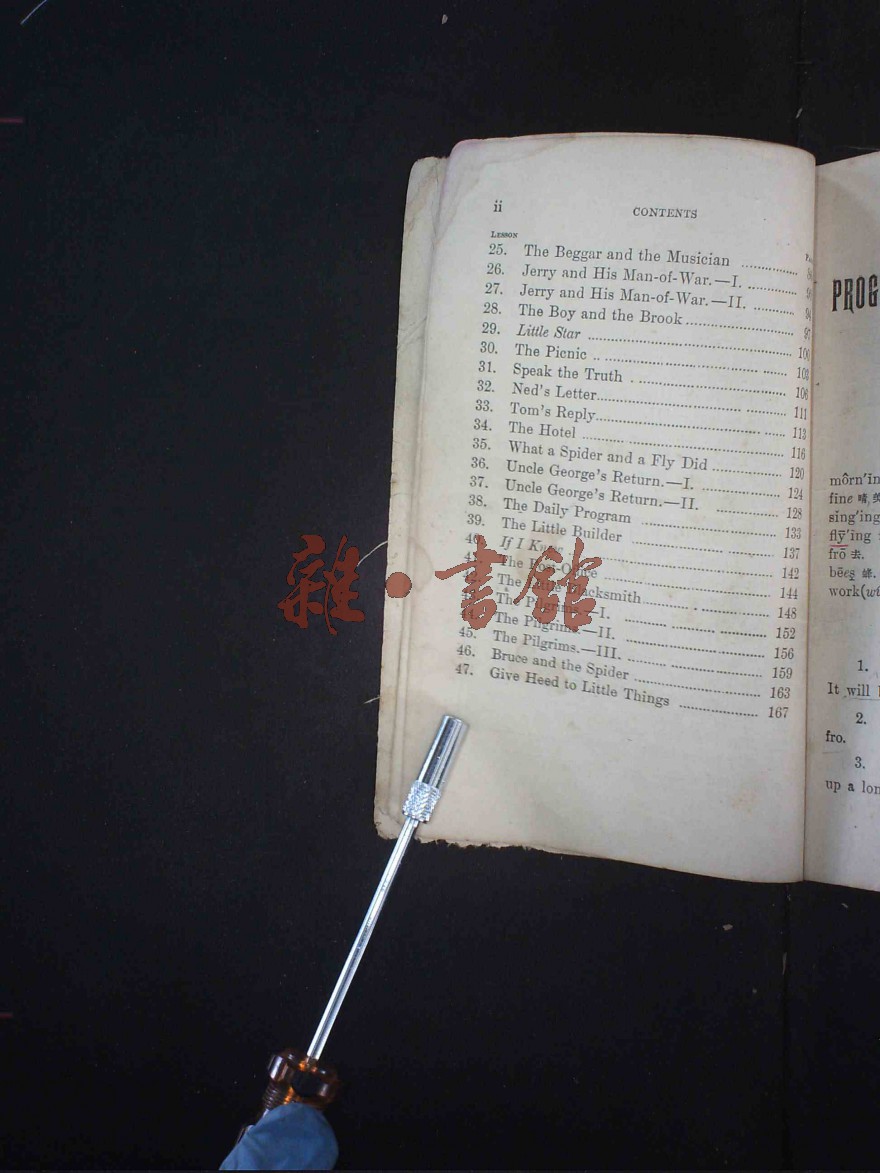 ii
CONTENTS
LESSON
25. The Beggar and the Musician
26. Jerry and His Man-of-War.—I.
27. Jerry and His Man-of-War.—II.
28. The Boy and the Brook
29. Little Star 100
30. The Picnic 103
31. Speak the Truth 106
32. Ned's Letter 111
33. Tom's Reply 113
34. The Hotel 116
35. What a Spider and a Fly Did 120
36. Uncle George's Return.—I. 124
37. Uncle George's Return.—II. 128
38. The Daily Program 133
39. The Little Builder 137
40. If I 142
41. The 144
42. The Blacksmith 148
The Pilgrims.—I. 152
44. The Pilgrims.—II. 156
45. The Pilgrims.—III. 159
46. Bruce and the Spider 163
47. Give Heed to Little Things 167
雜·書館
PROG
môrn'in
fine 晴,
sing'ing
flȳ'ing
frō 去.
bēeş 蜂.
work(
1.
It will
2.
fro.
3.
up a lon